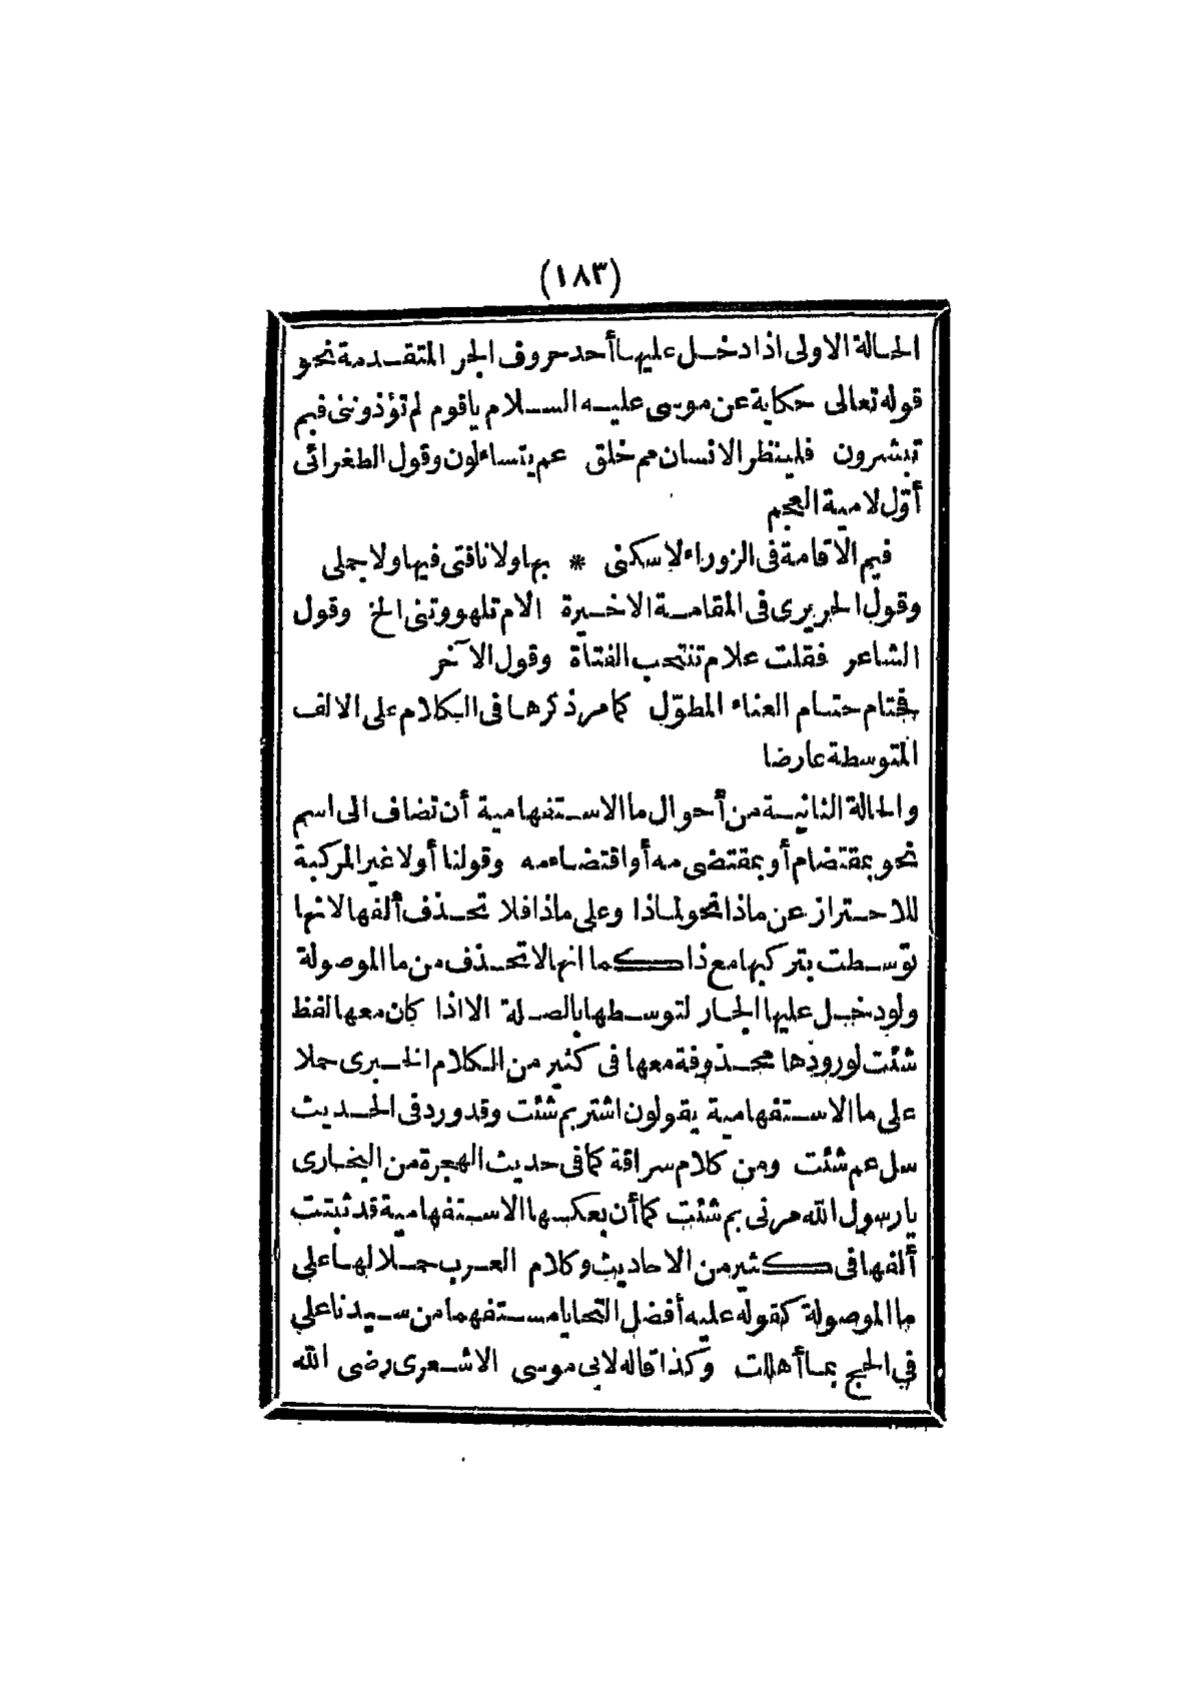 (١٨٣)
الحالة الاولى اذا دخل عليها أحد حروف الجر المتقدمة نحو
قوله تعالى حكاية عن موسى عليه السلام ياقوم لم تؤذوننى فيم
تبشرون فلينظر الانسان مم خلق عم يتساءلون وقول الطغرائى
أوّل لامية العجم
فيم الاقامة فى الزوراء لاسكنى * بها ولا ناقتى فيها ولا جملى
وقول الحريرى فى المقامة الاخيرة الام تلهو وتنى الخ وقول
الشاعر فقلت علام تنتحب الفتاة وقول الآخر
حتام العناء المطوّل كما مر ذكرها فى الكلام على الالف
المتوسطة عارضا
والحالة الثانية من أحوال ما الاستفهامية أن تضاف الى اسم
نحو بمقتضام أو بمقتضى مه أو اقتضاءمه وقولنا أولا غير المركبة
للاحتراز عن ماذا نحو لماذا وعلى ماذا فلا تحذف ألفها لانها
توسطت بتركبها مع ذا كما انها لا تحذف من ما الموصولة
ولو دخل عليها الجار لتوسطها بالصلة الا اذا كان معها لفظ
شئت لورودها محذوفة معها فى كثير من الكلام الخبرى حملا
على ما الاستفهامية يقولون اشتر بم شئت وقد ورد فى الحديث
سل عم شئت ومن كلام سراقة كما فى حديث الهجرة من البخارى
يارسول الله مرنى بم شئت كما أن بعكسها الاستفهامية قد ثبتت
ألفها فى كثير من الاحاديث وكلام العرب حملا لها على
ما الموصولة كقوله عليه أفضل التحايا مستفهما من سيدنا على
فى الحج بما أهللت وكذا قاله لابى موسى الاشعرى رضى الله